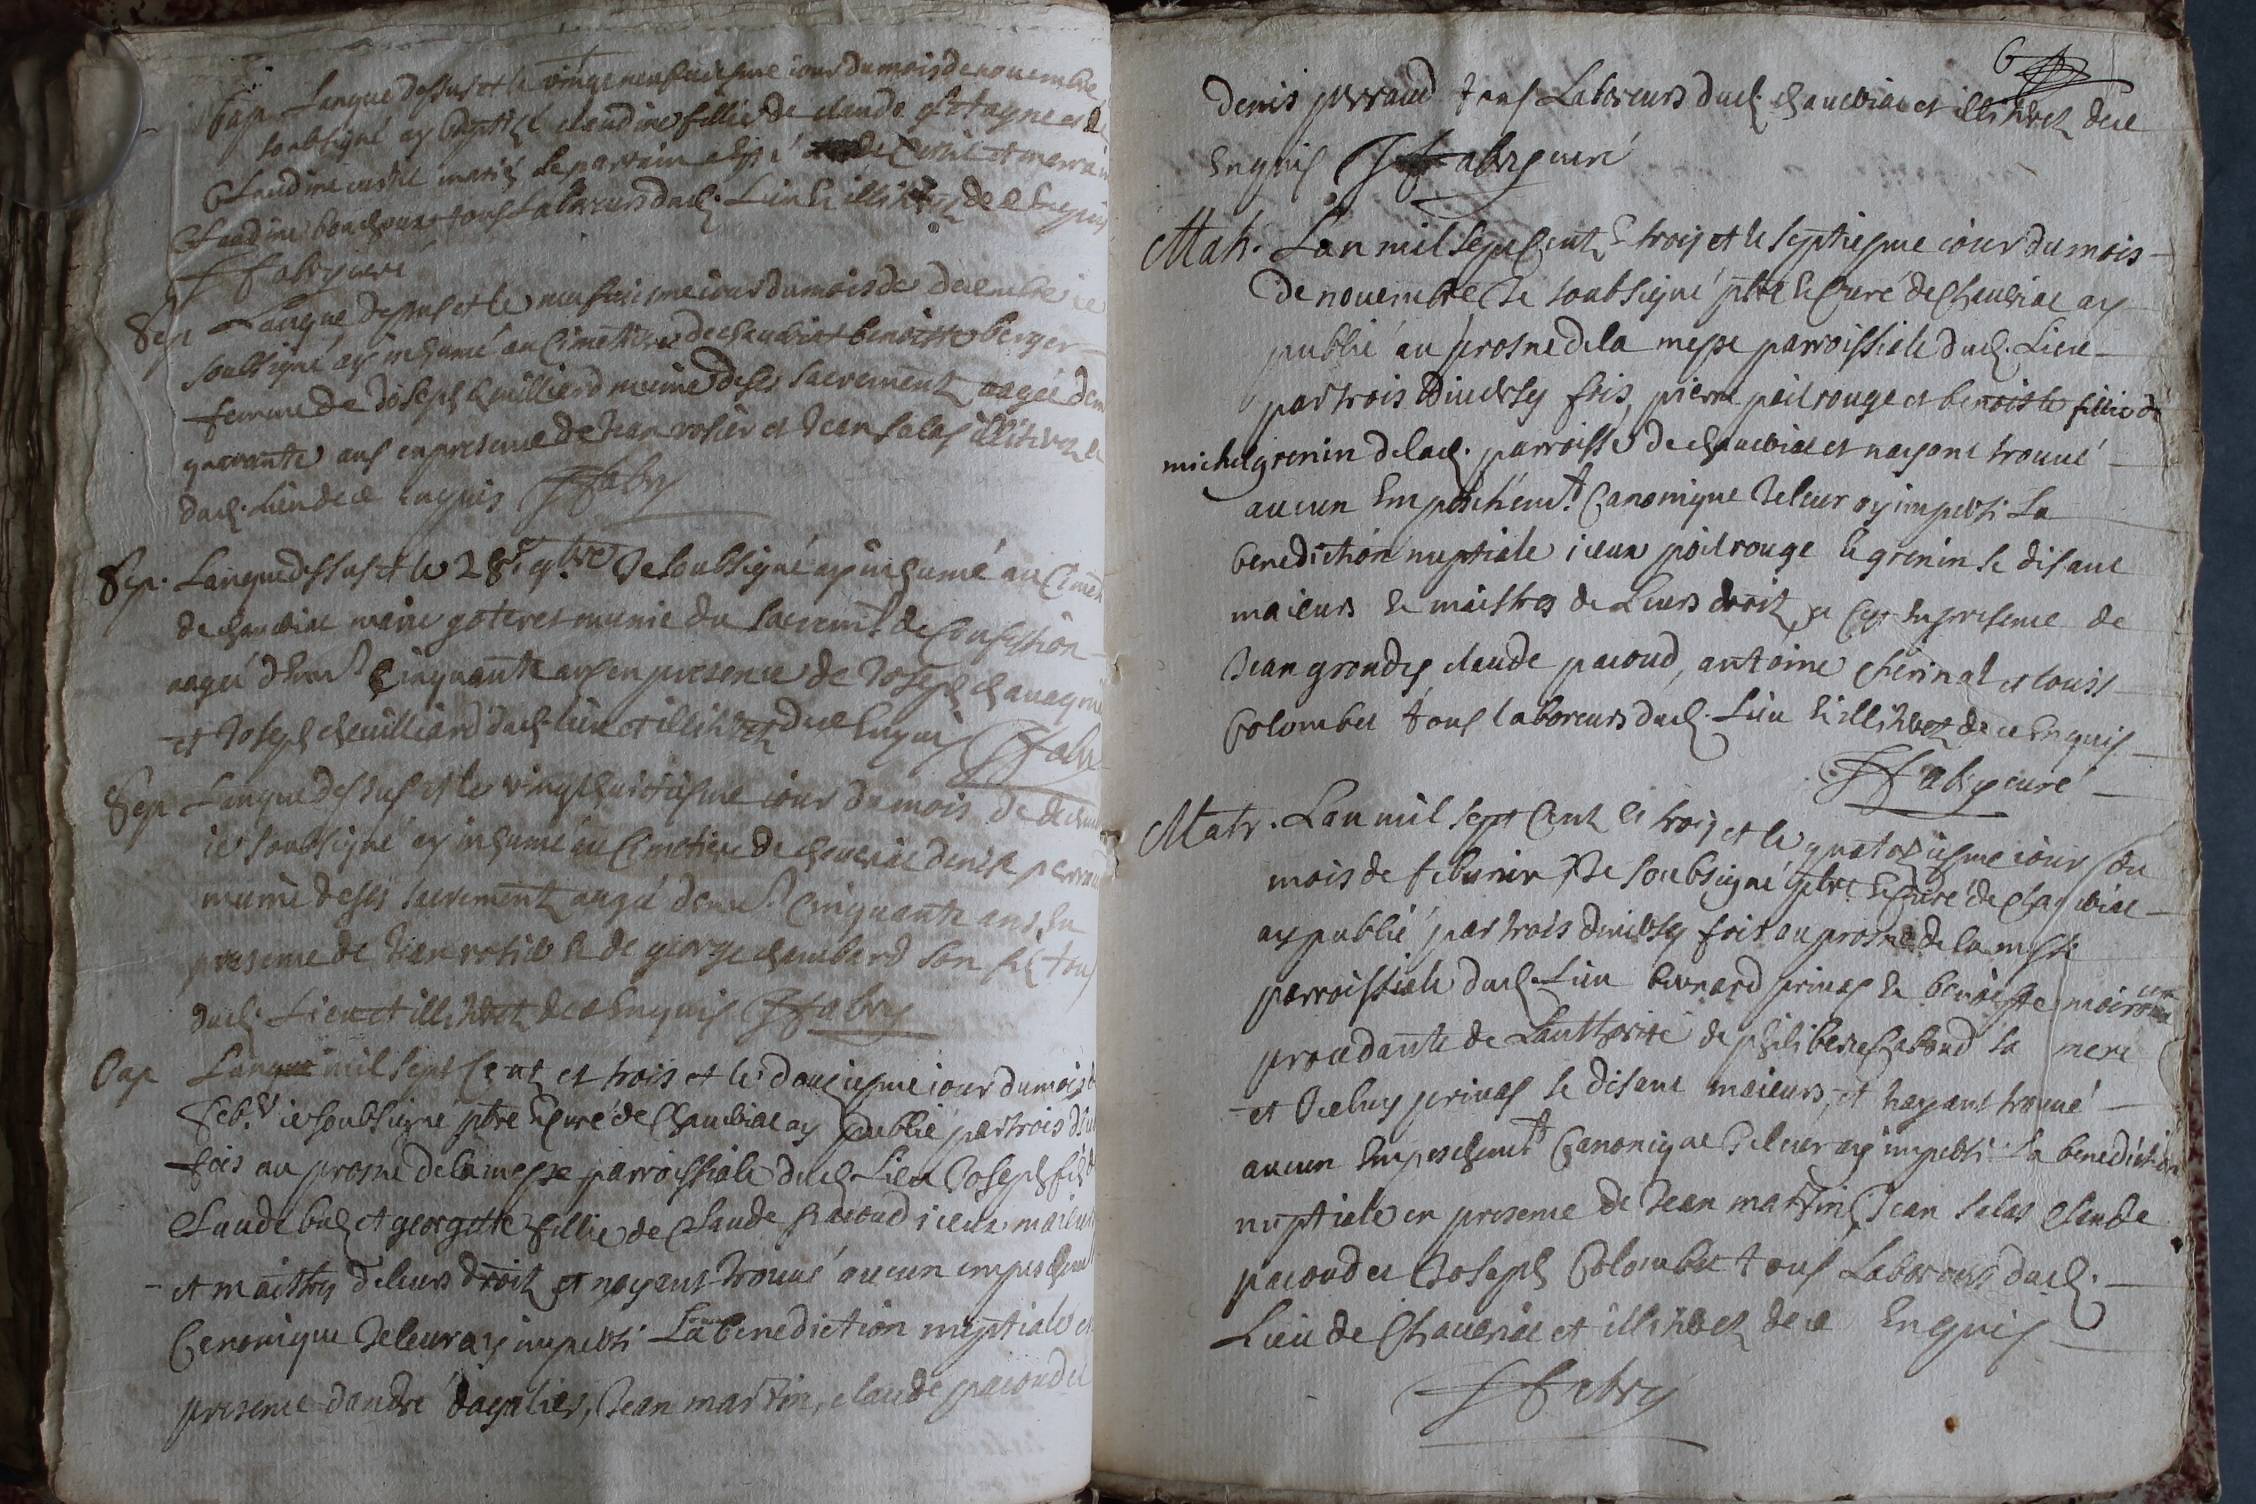 bap Lanque dessus et le vingt neufuiesme iour du mois de nouembre
soubsigné ay baptizé claudine fillie de claude et
Claudine marié le parrain et marraine
Claudine tous Laboreurs dud. Lieu & illitterez de ce Enquis
Fabry curé
Sep Lanque dessus et le neufuiesme iour du mois de decembre ie
soubsigné ay inhumé au Cimettiere de chauuiat benoiste berger
femme de Joseph cheuilliard munie de ses sacrementz aagée denu
quarante ans en presence de Jean rosier et Jean salas illiterez
dud. Lieu de ce enquis Fabry
Sep. Lanque dessus et le 28e 9bre Je soubsigné ay inhumé au Cimet
de chauuiat marie goteret munie du sacremt. de Confession
aagée denu. Cinquante ans en presence de Joseph
et Joseph cheuilliard dud. lieu et illitterez de ce Enquis Fabry
Sep Lanque dessus et le vingt huictiesme iour du mois de decemb
ie soubsigné ay inhumé au Cimetiere de chauuiat denis perraud
muni de ses sacrementz aagé denu. Cinquante ans En
presence de Jean rosier & de george chambard son fil tous
dud. Lieu et illitterez de ce Enquis Fabry
bap Lanque mil sept Centz et trois et le douziesme iour du mois
Feb.er ie soubsigné pbre & curé de Chauuiat ay publié par trois diu
fois au prosne de la messe parroissiale dud. Lieu Joseph fils
Claude et georgette fillie de Claude pacoud iceux maieurs
et maistres de leurs droitz et nayant trouué aucun empeschemt
Canonique Je leur ay imparti La benediction nuptiale en
presence dandré dagalier, Jean martin, claude pacoud et
6
denis perraud tous Laboreurs dud. chauuiat et illitterez de ce
Enquis Fabry curé
Matr. Lan mil sept Centz & trois et le septiesme iour du mois
de nouembre Je soubsigné pbre & Curé de Chauuiat ay
publié au prosne de la messe parroissiale dud. Lieu
par trois diuerses fois, pierre poilrouge et benoiste fillie de
michel grenin de lad. parroisse de chauuiat et nayant trouué
aucun Empeschemt. Canonique Je leur ay imparti La
benediction nuptiale iceux poilrouge & grenin se disant
maieurs & maistres de Leurs droitz, et Ce en presence de
Jean grondes claude pacoud, antoine et louis
Colombet tous laboreurs dud. Lieu & illitterez de ce Enquis
Fabry curé
Matr. Lan mil sept Centz & trois et le quatorziesme iour du
mois de feburier Je soubsigné pbre & Curé de Chauuiat
ay publié par trois diuerses fois au prosne de la messe
parroissiale dud. Lieu bernard priuas & benoiste
procedante de Lauthorité de philiberte Caboud sa mere
et Iceluy priuas se disant maieurs, et nayant trouué
aucun Empeschemt. Canonique Je leur ay imparti La benediction
nuptiale en presence de Jean martin, Jean salas Claude
pacoud et Joseph Colombet tous Laboreurs dud.
Lieu de Chauuiat et illitterez de ce Enquis
Fabry